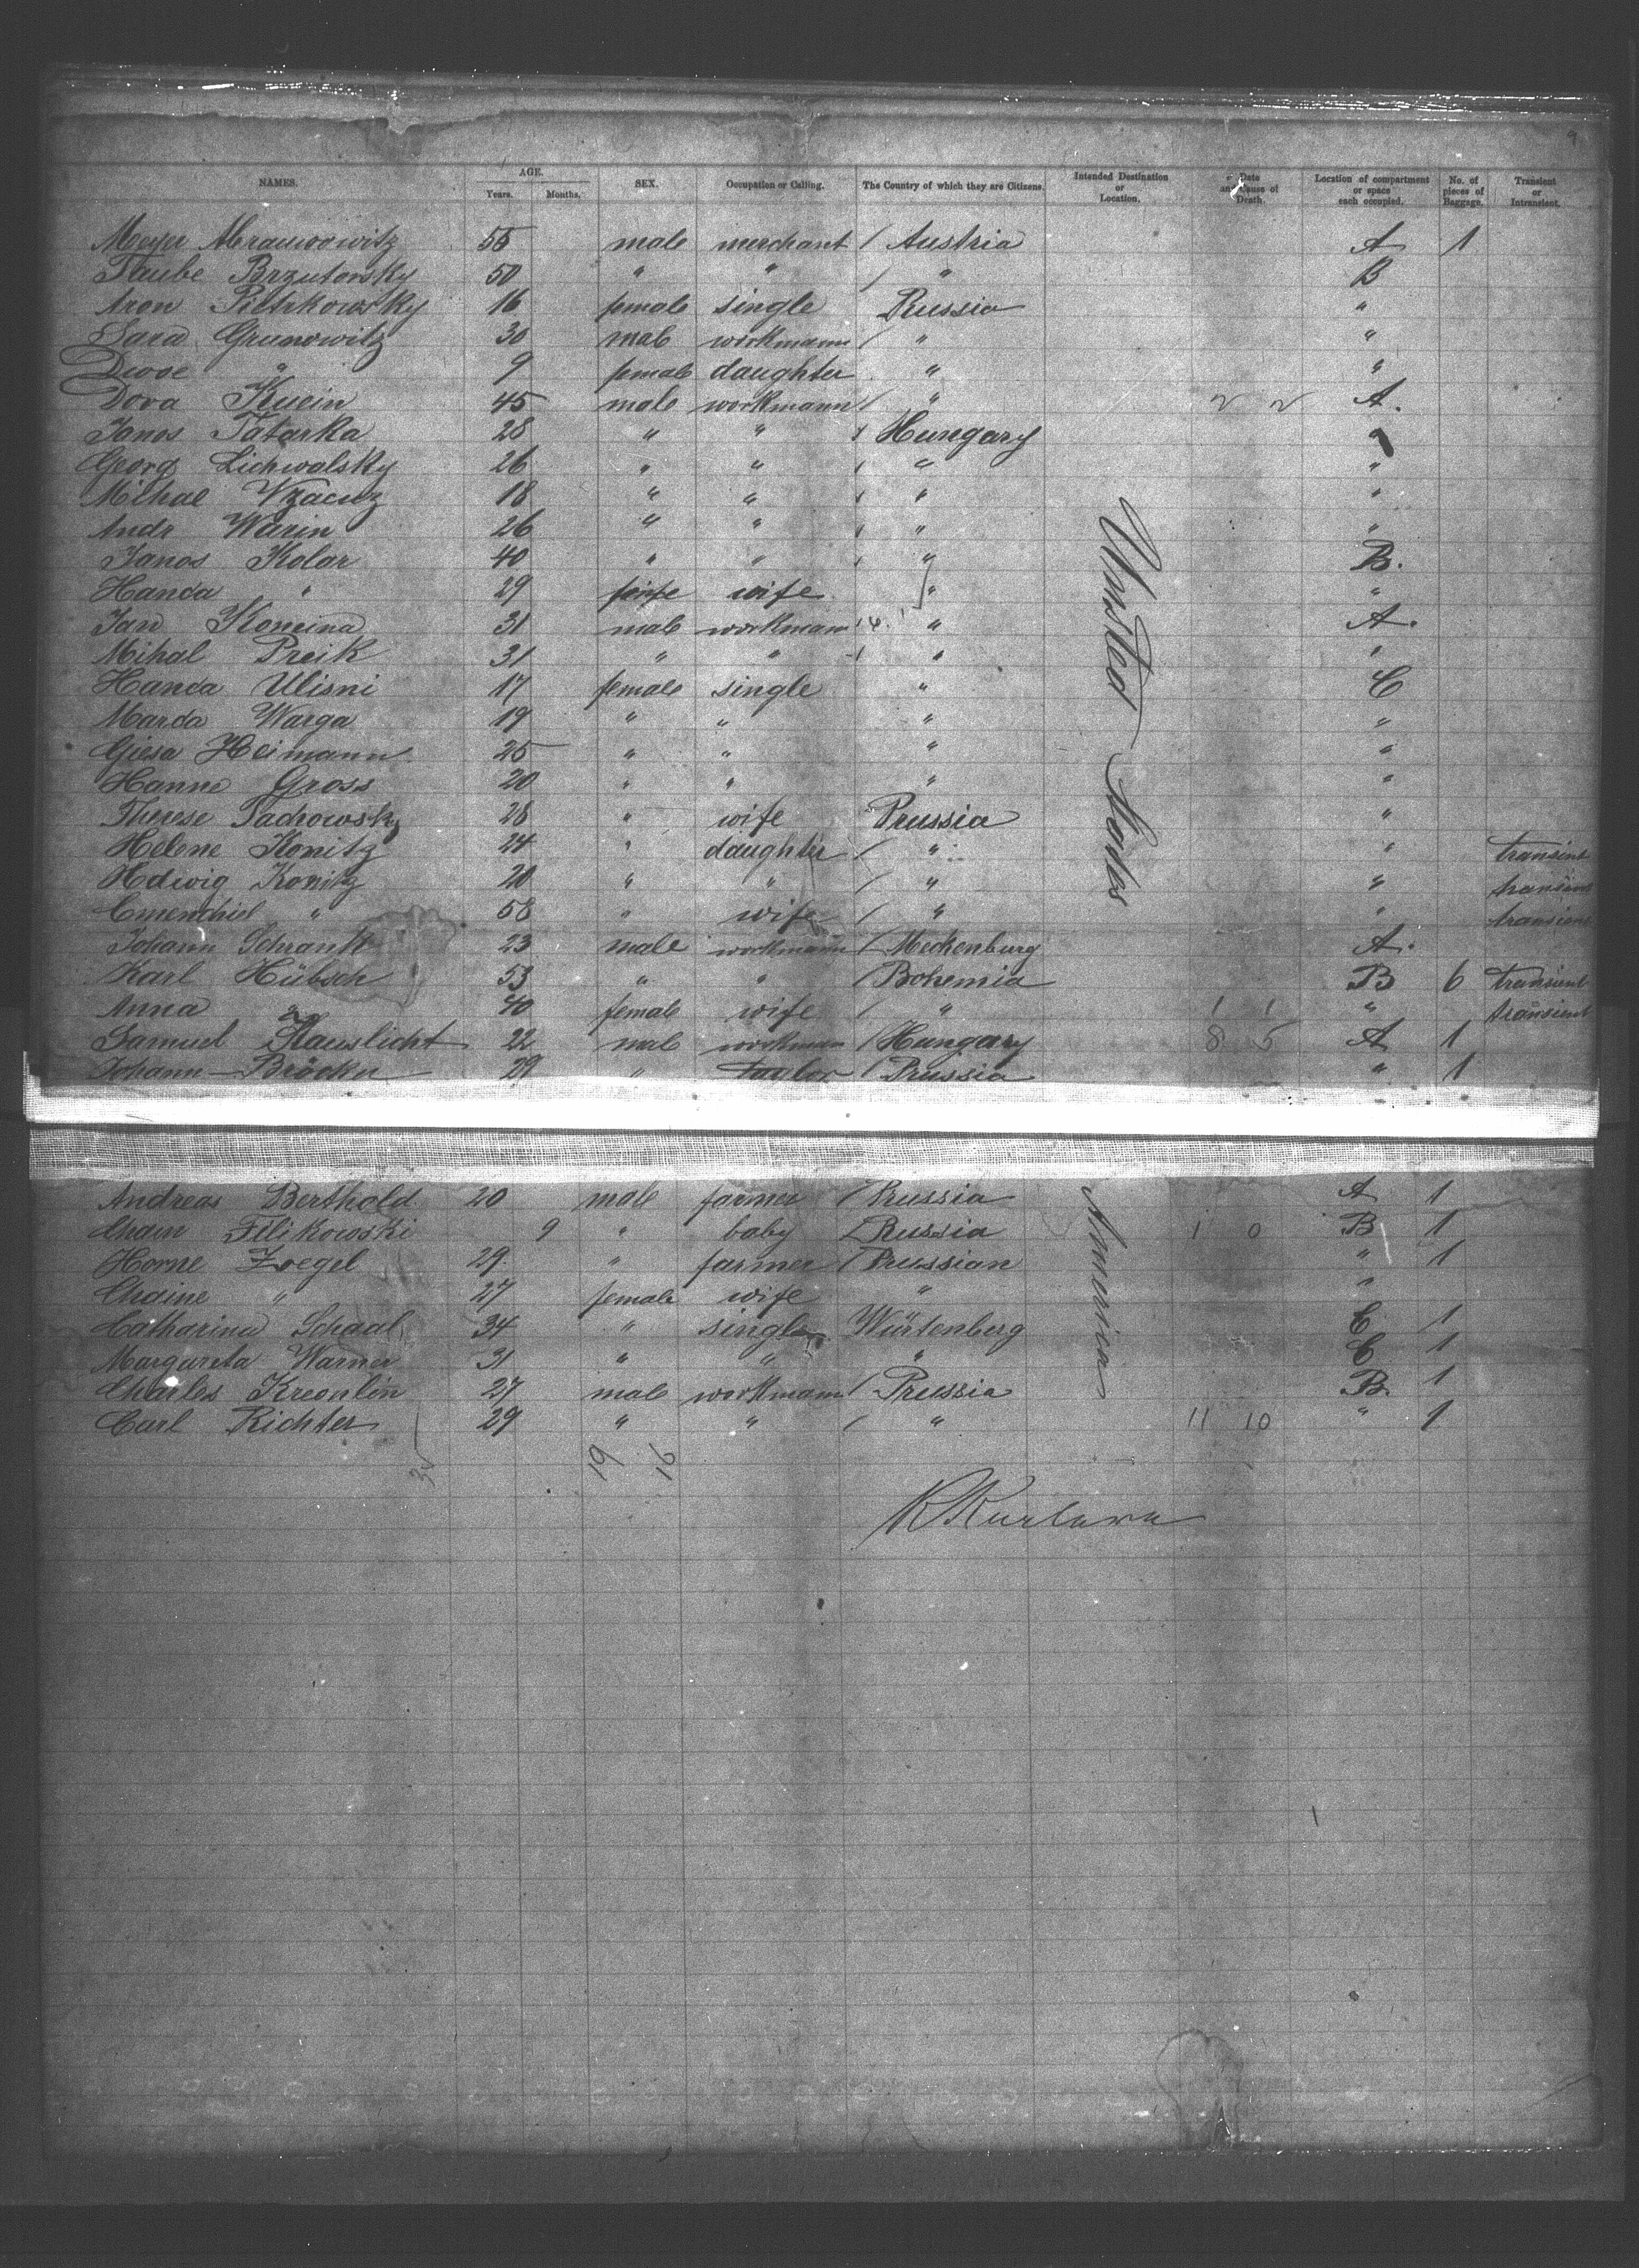 9
NAMES. AGE. Years. Months. SEX. Occupation or Calling. The Country of which they are Citizens. Intended Destination or Location. Date and Cause of Death. Location of compartment or space each occupied. No. of pieces of Baggage. Transient or Intransient.
Meyer Abramowitz 55 male merchant / Austria A 1
Taube Brzutowsky 50 " " / " B
Aron Pietrkowsky 16 female single Russia "
Sara Grunowitz 30 male workmann / " "
Dwoe " 9 female daughter " "
Dova Kuein 45 male workmann / " A.
Janos Tatarka 28 " " / Hungary "
Georg Lichwalsky 26 " " / " "
Mihal 18 " " / " "
Andr Warin 26 " " / " "
Janos Kolar 40 " " / " B.
Handa " 29 wife " "
Jan Komina 31 male workmann " A.
Mihal Preik 31 " " / " "
Handa Ulisni 17 female single " C
Marda Warga 19 " " " "
Giesa Heimann 25 " " " "
Hanne Gross 20 " " " "
Therese Pachowsky 28 " wife Prussia "
Helene Konitz 24 " daughter / " " transient
Hedwig Konitz 20 " " / " " transient
" 58 " wife / " " transient
Johann Schrank 23 male workmann / Meckenburg A.
Karl Hübsch 53 " " / Bohemia B 6 transient
Anna " 40 female wife / " 1 1 " transient
Samuel Hauslicht 22 male workman / Hungary 8 5 A 1
Johann Bröcku 29 " Taylor / Prussia " 1
United States
Andreas Berthold 20 male farmer / Prussia A 1
Chain Filikowski 9 " baby / Russia 1 0 B 1
Horne Zoegel 29. " farmer / Prussian " 1
Chaine " 27 female wife " "
Catharina Schaal 34 " single Würtenberg C 1
Margareta Warner 31 " " " C 1
Charles Kreonlin 27 male workmann / Prussia B. 1
Carl Richter 29 " " / " 11 10 " 1
America
19 16